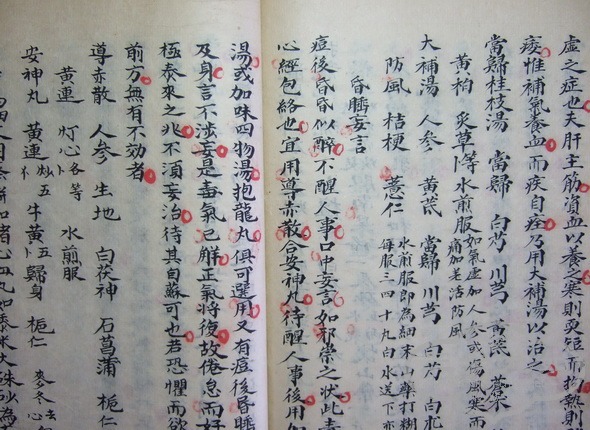 虛之症也夫肝主筋資血以養之寒則更短而拘熱則
痿惟補氣養血而疾自痊乃用大補湯以治之
當歸桂枝湯 當歸 白芍 川芎 黃芪 蒼术
黃柏 炙草 等 水煎服 如氣虛加人參或傷風寒而
痛加羌活防風
大補湯 人參 黃芪 當歸 川芎 白芍 白朮
防風 桔梗 薏仁 水煎服即為細末山藥打糊
每服三四十丸白水送下
昏睡妄言
痘後昏昏似醉不醒人事口中妄言如邪祟之狀此毒
心經包絡也宜用導赤散合安神丸待醒人事後用
湯或加味四物湯抱龍丸俱可選用又有痘後昏睡
及身言不涉妄是毒氣已解正氣將復故倦怠而好
極泰來之兆不須妄治待其自蘇可也若恐懼而欲
前方無有不効者
導赤散 人參 生地 白茯神 石菖蒲 梔仁
黃連 灯心 各等 水煎服
安神丸 黃連 炒五 牛黃 五 歸身 梔仁 麥冬 去心